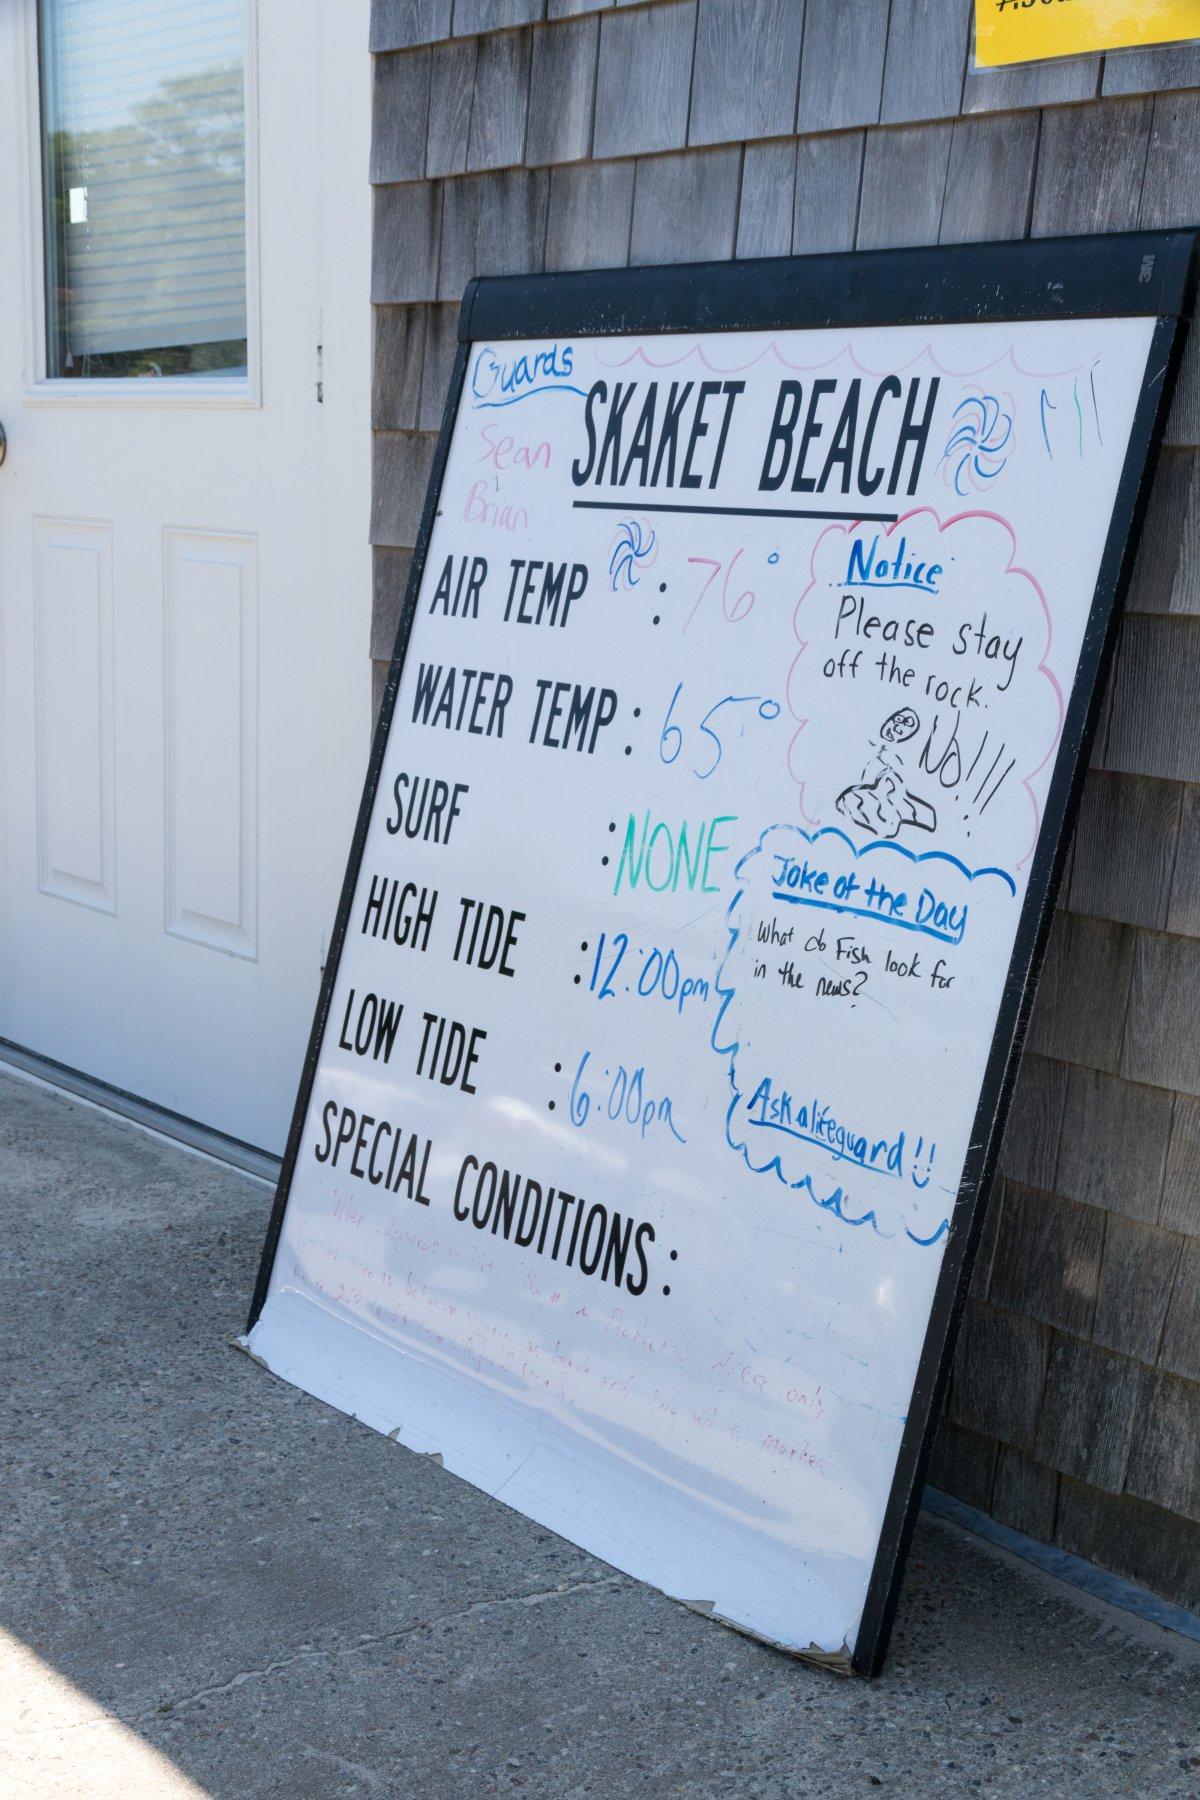 3M
Guards
SKAKET BEACH
Sean
Brian
AIR TEMP : 76°
WATER TEMP : 65°
SURF : NONE
HIGH TIDE : 12:00pm
LOW TIDE : 6:00pm
SPECIAL CONDITIONS :
Notice
Please stay
off the rock.
No!!!
Joke of the Day
What do Fish look for
in the news?
Ask a lifeguard!!
only
marker